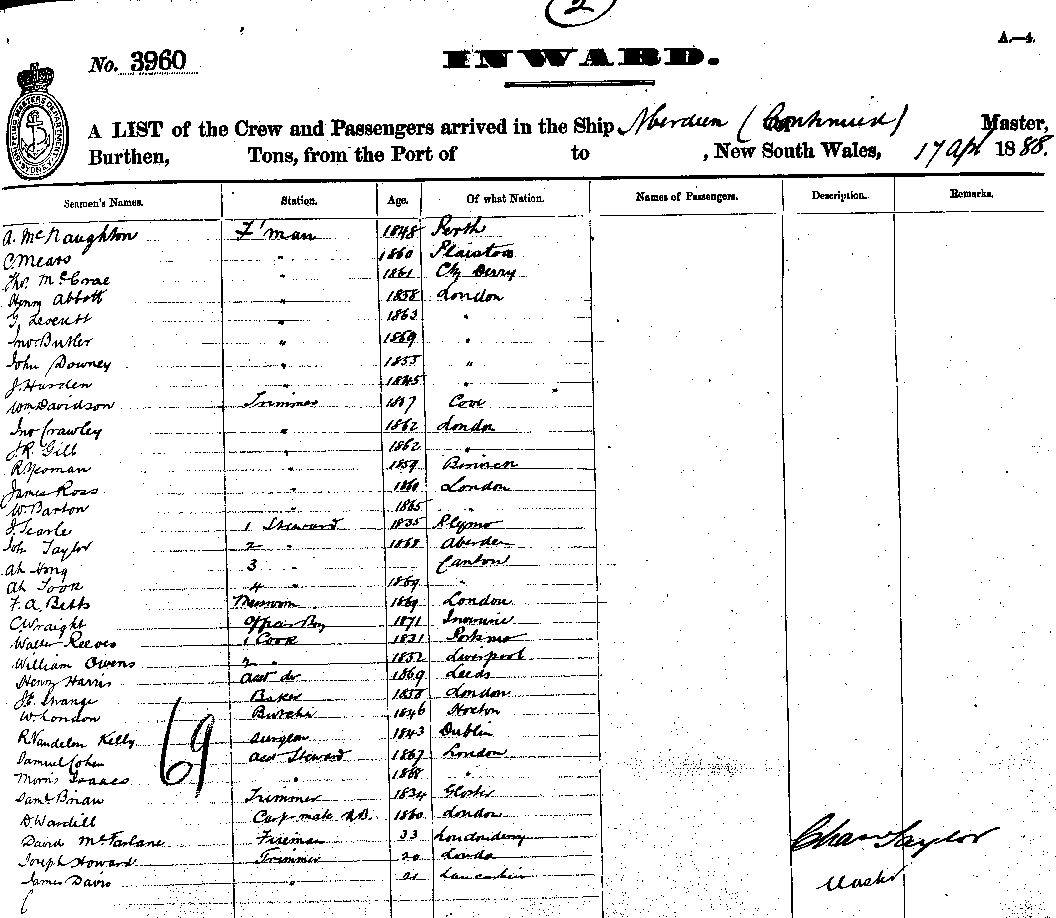 2
A.—4.
No. 3960
INWARD.
A LIST of the Crew and Passengers arrived in the Ship Aberdeen (Continued) Master,
Burthen, Tons, from the Port of to , New South Wales, 17 Apl 1888.
Seamen's Names. Station. Age. Of what Nation. Names of Passengers. Description. Remarks.
A. McNaughton F'man 1848 Perth
C Mears " 1860 Plaistow
Thos. McCrae " 1861 Derry
Henry Abbott " 1858 London
G. Leverett " 1863 "
Jno Butler " 1869 "
John Downey " 1855 "
J. Harden " 1845 "
Wm Davidson Trimmer 1867
Jno Crawley " 1862 London
J.R. Gill " 1862 "
R Yeoman " 1859
James Ross " 1860 London
W. Barton " 1865 "
J. Searle 1 Steward 1835 Plymo
John Taylor 2 " 1868 Aberdee
Ah Hong 3 " Canton
Ah Took 4 " 1869 "
F. A. Betts 1869 London
C Wraight 1871
Walter Reeves 1 Cook 1831 Portsmo
William Owens 2 " 1852 Liverpool
Henry Harris 1869 Leeds
J.E. Strange Baker 1858 London
W. London Butcher 1846 Hoxton
R Vandeleur Kelly Surgeon 1843 Dublin
Samuel Cohen Asst Steward 1867 London
Morris Isaacs " 1868 "
Saml Brian Trimmer 1834 Gloster
D. Wardill Carp mate A.B. 1860 London
David McFarlane Fireman 33 Londonderry
Joseph Howard Trimmer 20 Londo
James Davis " 21
69
Chas Taylor
Master